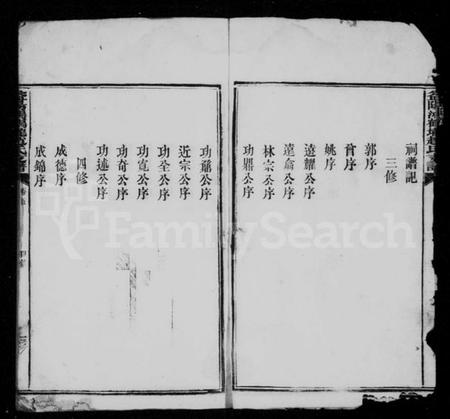 祠譜記
三修
郭序
首序
姚序
遠耀公序
達畲公序
林宗公序
功鼎公序
功鼐公序
近宗公序
功全公序
功寬公序
功奇公序
功述公序
四修
成德序
成鏞序
FamilySearch